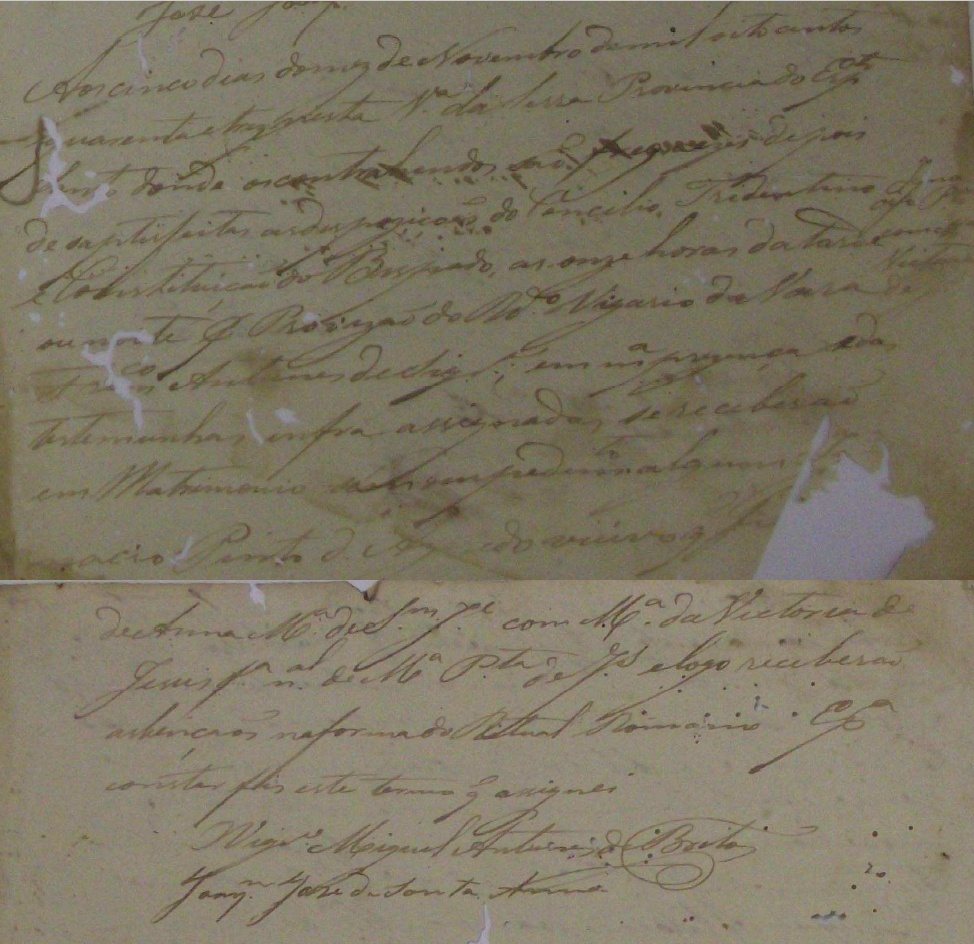 José Joaq.
Aos cinco dias do mez de Novembro de mil oito centos
quarenta e trez nesta V.ª da Serra Provincia do Esp.to
Santo donde os contrahendos saõ freguezes depois
de satisfeitas as desposiçoẽs do Concilio Tridentino
e Constituiçaõ do Bispado, as onze horas da tarde
ou noite P. Provizaõ do R.do Vigario da Vara
Fran.co Antunes de Siq.ra, em m.ª prezença e das
testemunhas infra assignadas, se receberaõ
em Matrimonio sem empedim.to algum
nacio Pinto d' Az do viuvo q
de Anna M.ª de S. com M.ª da Victoria de
Jesus f.ª n.al de M.ª P.ta de J.s e logo receberaõ
as bençaõs na forma do Ritual Romano. E p.ª
constar fis este termo q assignei
Vigr.º Miguel Antunes de Brito
Joaq.m José de Santa Anna